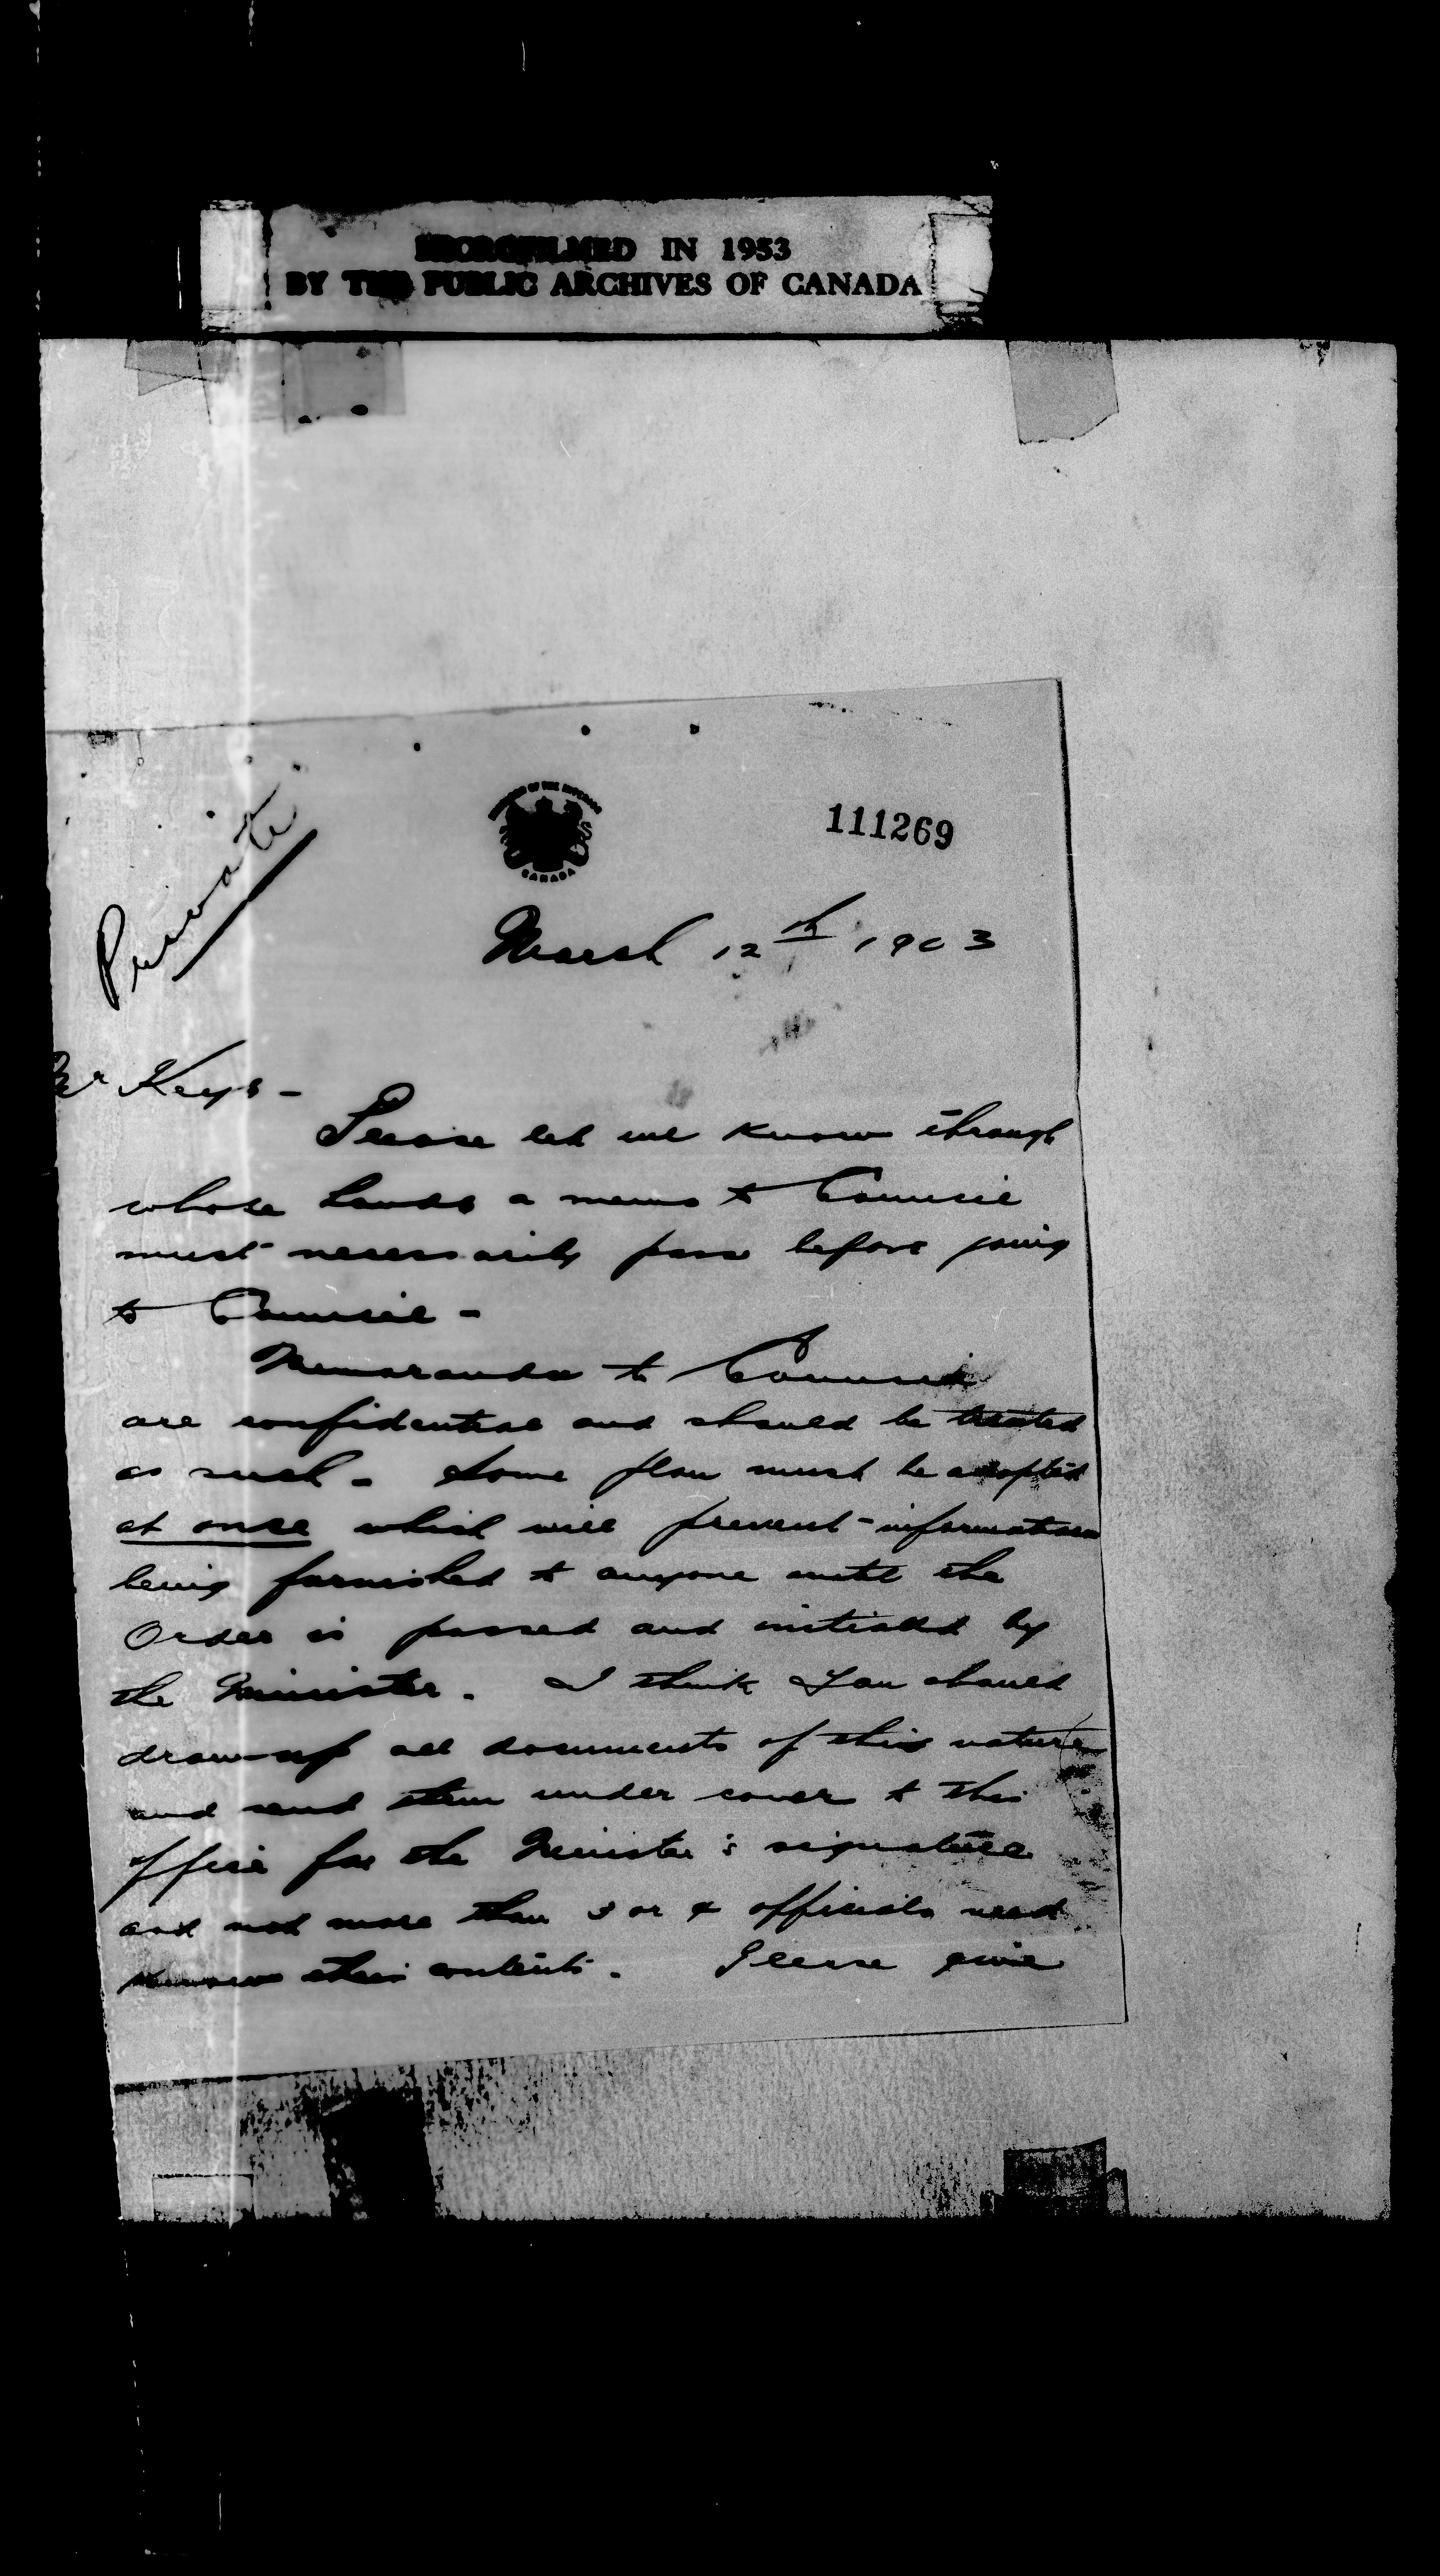 MICROFILMED IN 1953
BY THE PUBLIC ARCHIVES OF CANADA
OF THE INTERIOR
CANADA
111269
Private.
March 12th 1903
Mr Keys -
Please let me know through
whose hands a memo to Council
must necessarily pass before going
to Council -
Memoranda to Council
are confidential and should be treated
as such - Some plan must be adopted
at once which will prevent information
being furnished to anyone until the
Order is passed and initialed by
the Minister. I think you should
draw up all documents of this nature
and send them under cover to this
office for the Minister's signature
and not more than 3 or 4 officials need
know their contents. Please give